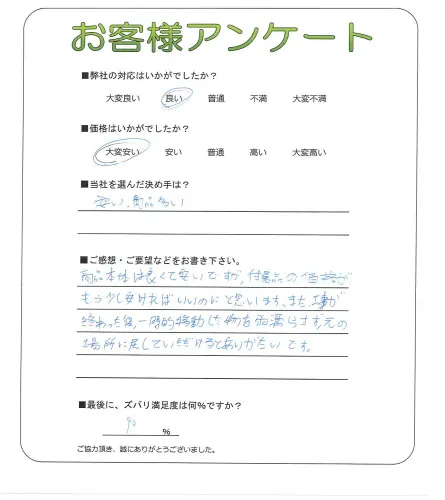 お客様アンケート
■弊社の対応はいかがでしたか?
大変良い 良い 普通 不満 大変不満
■価格はいかがでしたか?
大変安い 安い 普通 高い 大変高い
■当社を選んだ決め手は?
安い、商品多い
■ご感想・ご要望などをお書き下さい。
商品本体は良くて安いですが,付属品の価格が
もう少し安ければいいのにと思います。また、工事が
終わった後,一時的移動した物を忘れらず,元の
場所に戻していただけるとありがたいです。
■最後に、ズバリ満足度は何%ですか?
90 %
ご協力頂き、誠にありがとうございました。